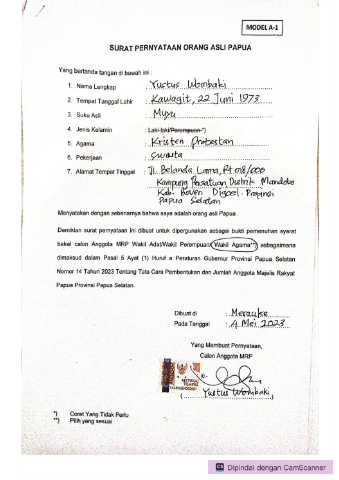 MODEL A-1
SURAT PERNYATAAN ORANG ASLI PAPUA
Yang bertanda tangan di bawah ini :
1. Nama Lengkap : Yustus Wombaki
2. Tempat Tanggal Lahir : Kawagit, 22 Juni 1973
3. Suku Asli : Muyu
4. Jenis Kelamin : Laki-laki/Perempuan *)
5. Agama : Kristen Protestan
6. Pekerjaan : Swasta
7. Alamat Tempar Tinggal : Jl. Belanda Lama, Rt 018/000
Kampung Persatuan Distrik Mandobo
Kab. Boven Digoel Provinsi
Papua Selatan
Menyatakan dengan sebenarnya bahwa saya adalah orang asli Papua.
Demikian surat pernyataan ini dibuat untuk dipergunakan sebagai bukti pemenuhan syarat
bakal calon Anggota MRP Wakil Adat/Wakil Perempuan/Wakil Agama**) sebagaimana
dimaksud dalam Pasal 5 Ayat (1) Huruf a Peraturan Gubernur Provinsi Papua Selatan
Nomor 14 Tahun 2023 Tentang Tata Cara Pembentukan dan Jumlah Anggota Majelis Rakyat
Papua Provinsi Papua Selatan.
Dibuat di : Merauke
Pada Tanggal : 4 Mei 2023
Yang Membuat Pernyataan,
Calon Anggota MRP
(Yustus Wombaki)
*) Coret Yang Tidak Perlu
**) Pilih yang sesuai
CS Dipindai dengan CamScanner